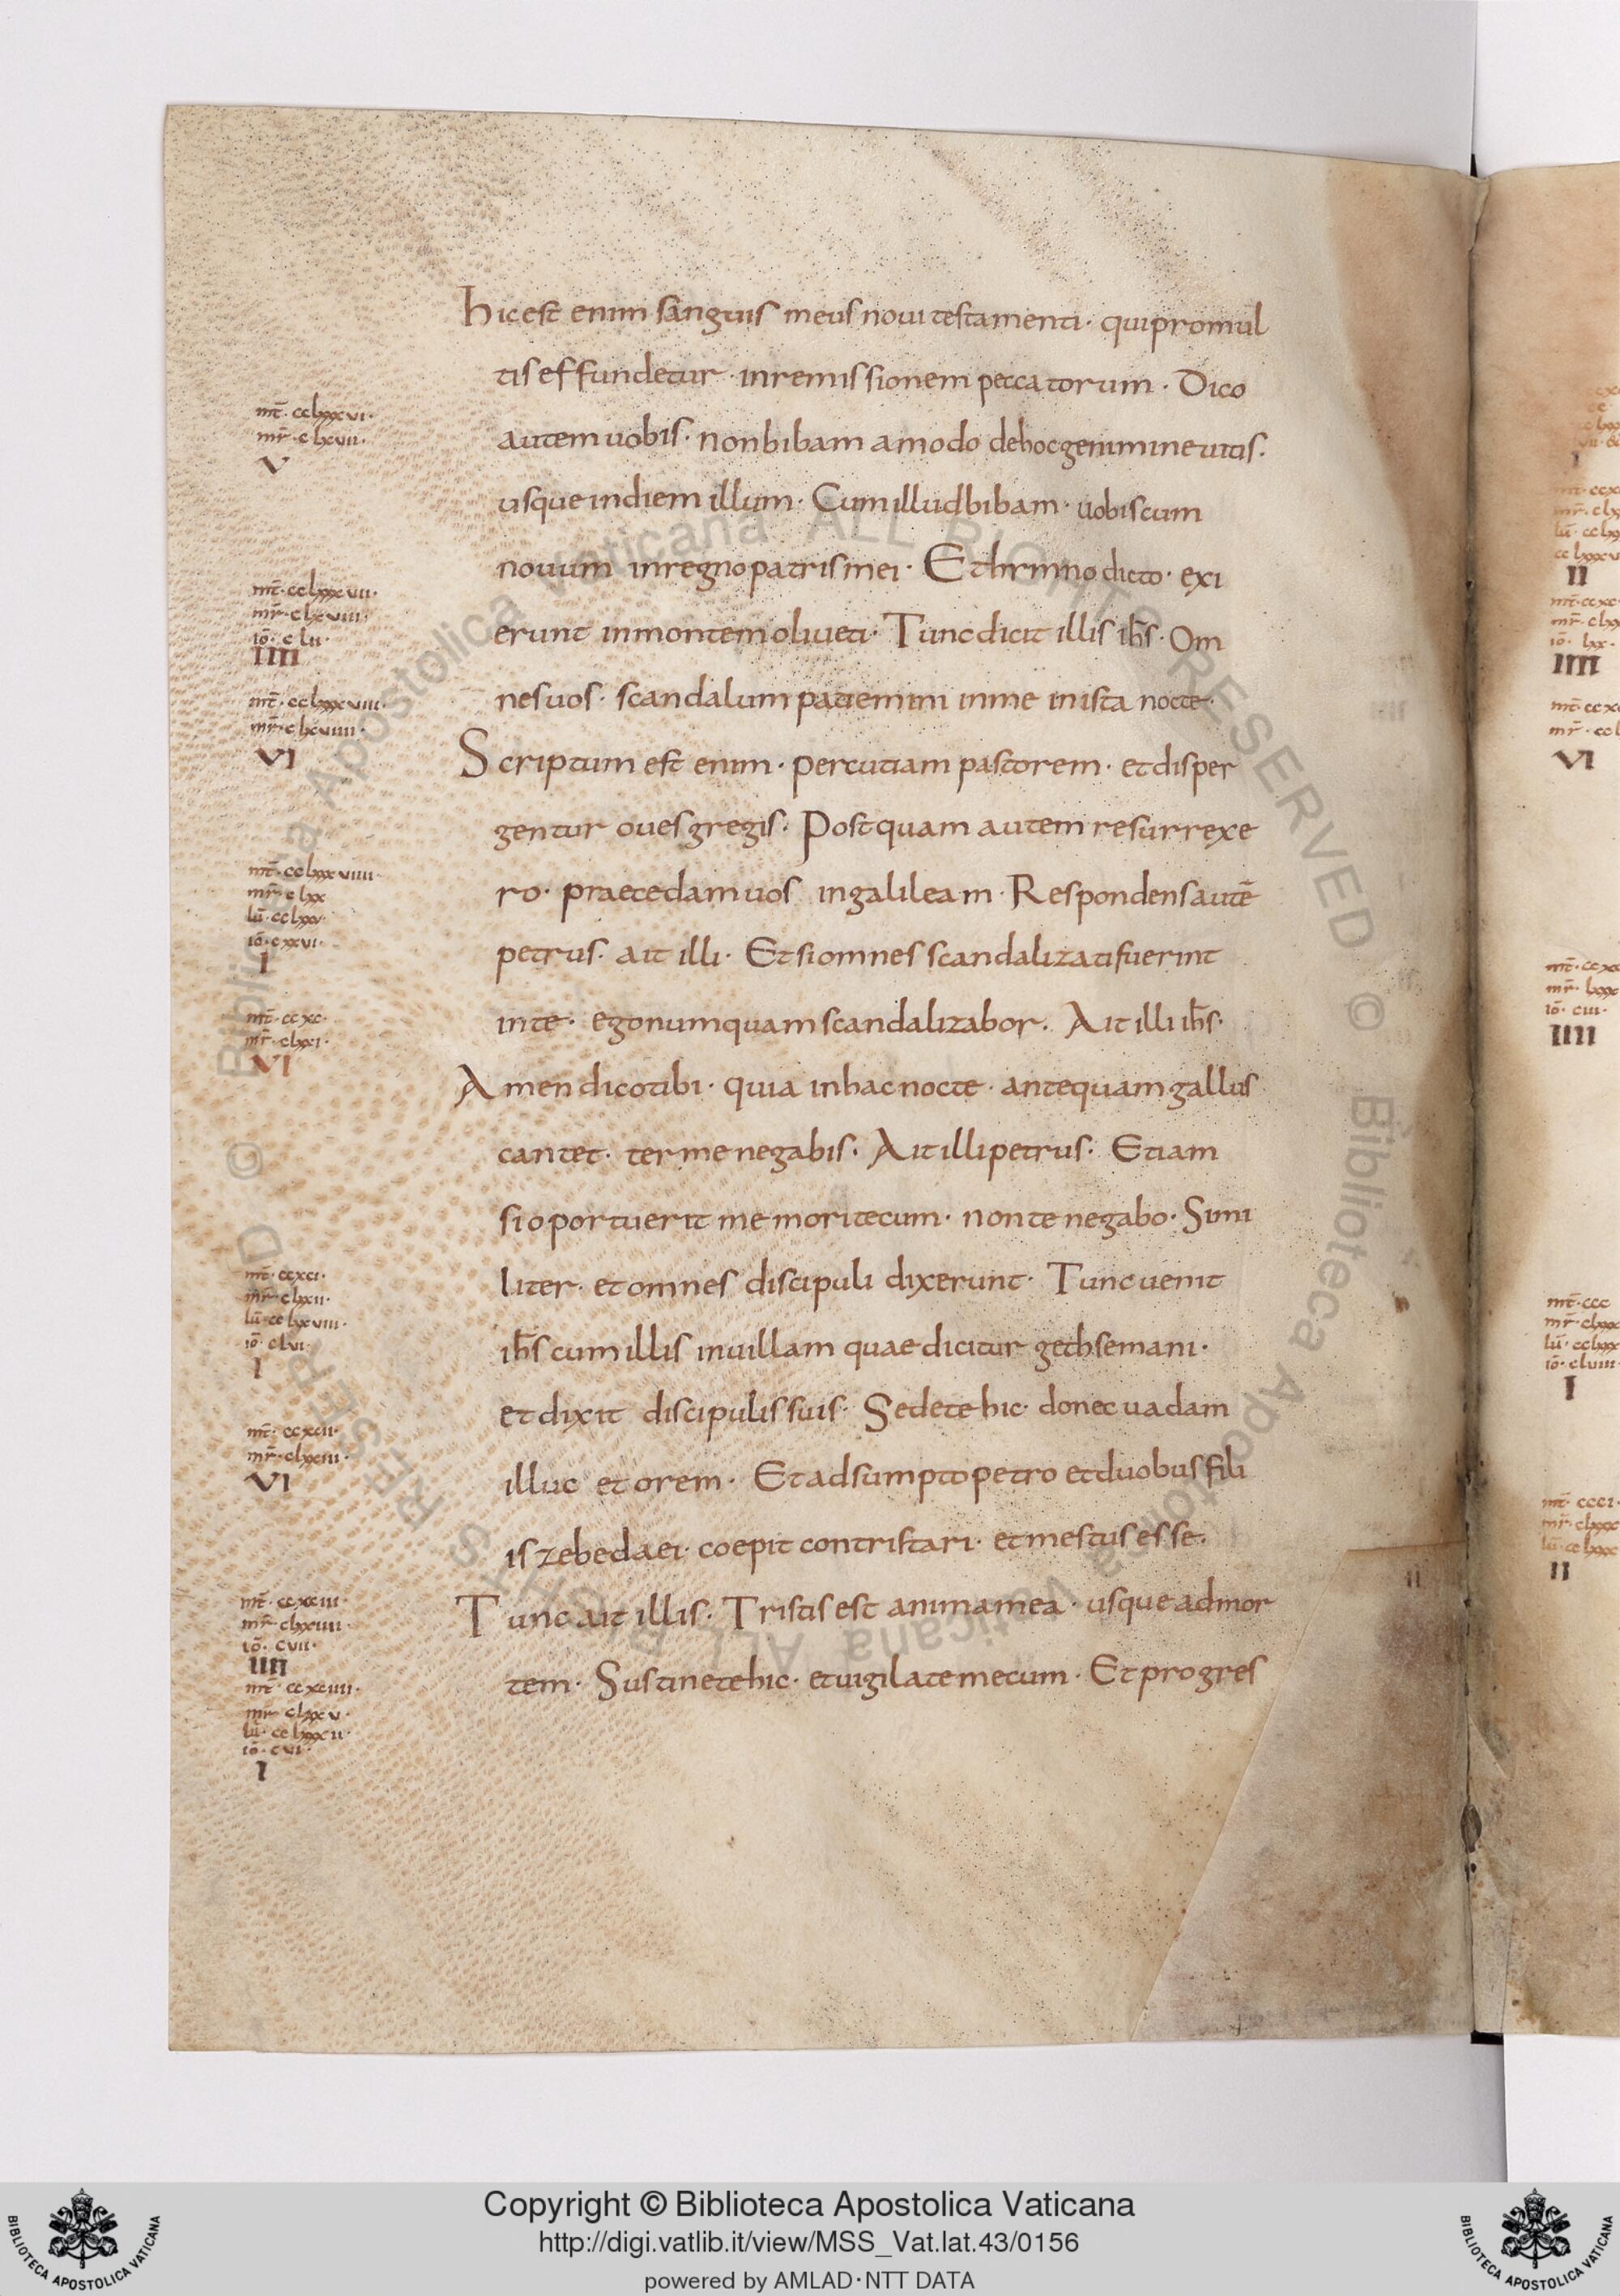 hic est enim sanguis meus noui testamenti· qui pro mul
tis effundetur· in remissionem peccatorum· Dico
mt̄· cclxxxvi·
mr̄· clxvii·
V
autem uobis· non bibam amodo de hoc genimine uitis·
usque in diem illum· Cum illud bibam· uobiscum
nouum in regno patris mei· Et hymno dicto· exi
mt̄· cclxxxvii·
mr̄· clxviii·
iō· clii·
IIII
erunt in montem oliueti· Tunc dicit illis ih̄s· Om
mt̄· cclxxxviii·
mr̄· clxviiii·
VI
nes uos· scandalum patiemini in me in ista nocte·
Scriptum est enim· percutiam pastorem· et disper
gentur oues gregis· Postquam autem resurrexe
mt̄· cclxxxviiii·
mr̄· clxx
lū· cclxxv·
iō· cxxvi·
I
ro· praecedam uos in galileam· Respondens autē
petrus· ait illi· Et si omnes scandalizati fuerint
mt̄· ccxc·
mr̄· clxxi·
VI
in te· ego numquam scandalizabor· Ait illi ih̄s·
Amen dico tibi· quia in hac nocte· antequam gallus
cantet· ter me negabis· Ait illi petrus· Etiam
si oportuerit me mori tecum· non te negabo· Simi
mt̄· ccxci·
mr̄· clxxii·
lū· cclxxviii·
iō· clvi·
I
liter· et omnes discipuli dixerunt· Tunc uenit
ih̄s cum illis in uillam quae dicitur gethsemani·
et dixit discipulis suis· Sedete hic· donec uadam
mt̄· ccxcii·
mr̄· clxxiii·
VI
illuc et orem· Et adsumpto petro et duobus fili
is zebedaei· coepit contristari· et mestus esse·
mt̄· ccxciii
mr̄· clxxiiii·
iō· cvii·
IIII
Tunc ait illis· Tristis est anima mea· usque ad mor
mt̄· ccxciiii·
mr̄· clxxv·
lū· cclxxxii·
iō· cvi·
I
tem· Sustinete hic· et uigilate mecum· Et progres
II
IIII
VI
IIII
I
II
Copyright © Biblioteca Apostolica Vaticana
http://digi.vatlib.it/view/MSS_Vat.lat.43/0156
powered by AMLAD·NTT DATA
BIBLIOTECA APOSTOLICA VATICANA
BIBLIOTECA APOSTOLICA VATICANA